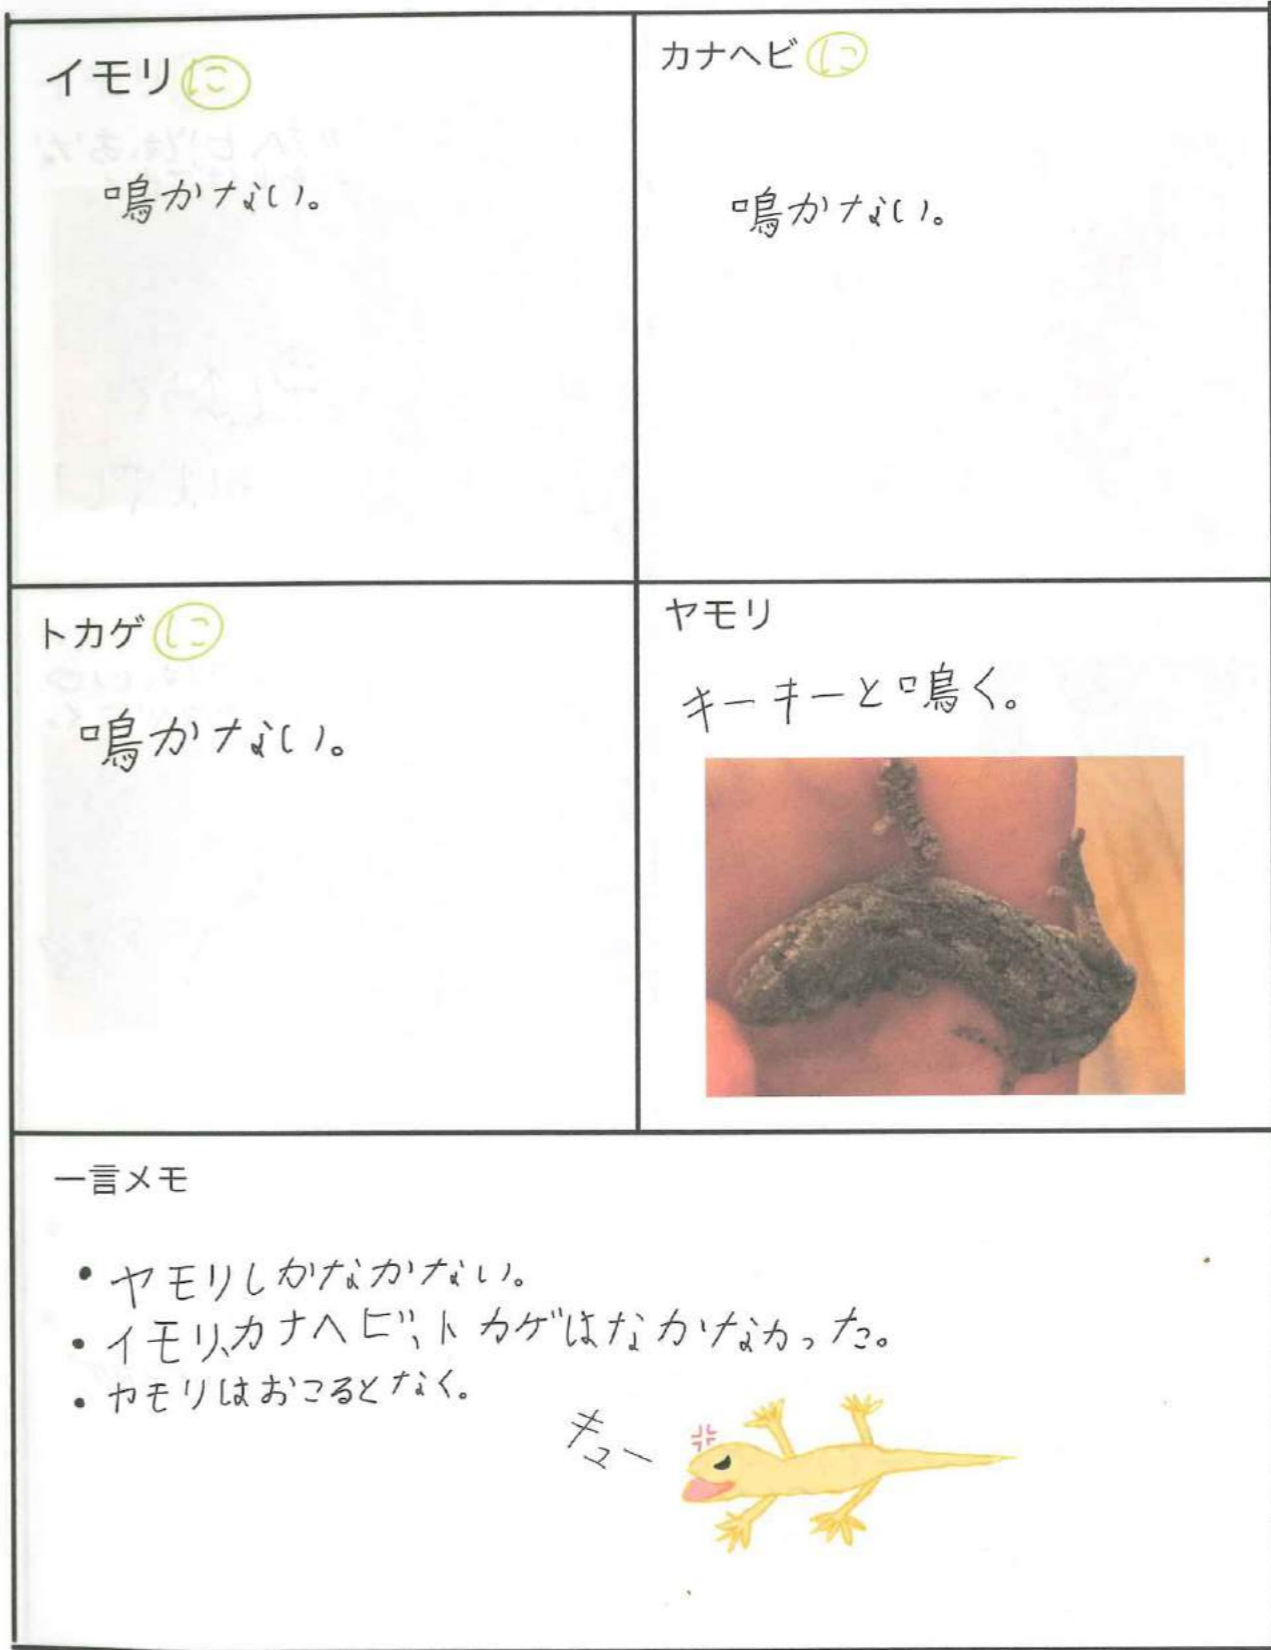 イモリ に
鳴かない。
カナヘビ に
鳴かない。
トカゲ に
鳴かない。
ヤモリ
キーキーと鳴く。
一言メモ
• ヤモリしかなかない。
• イモリ、カナヘビ、トカゲはなかなかった。
• ヤモリはおこるとなく。
キュー